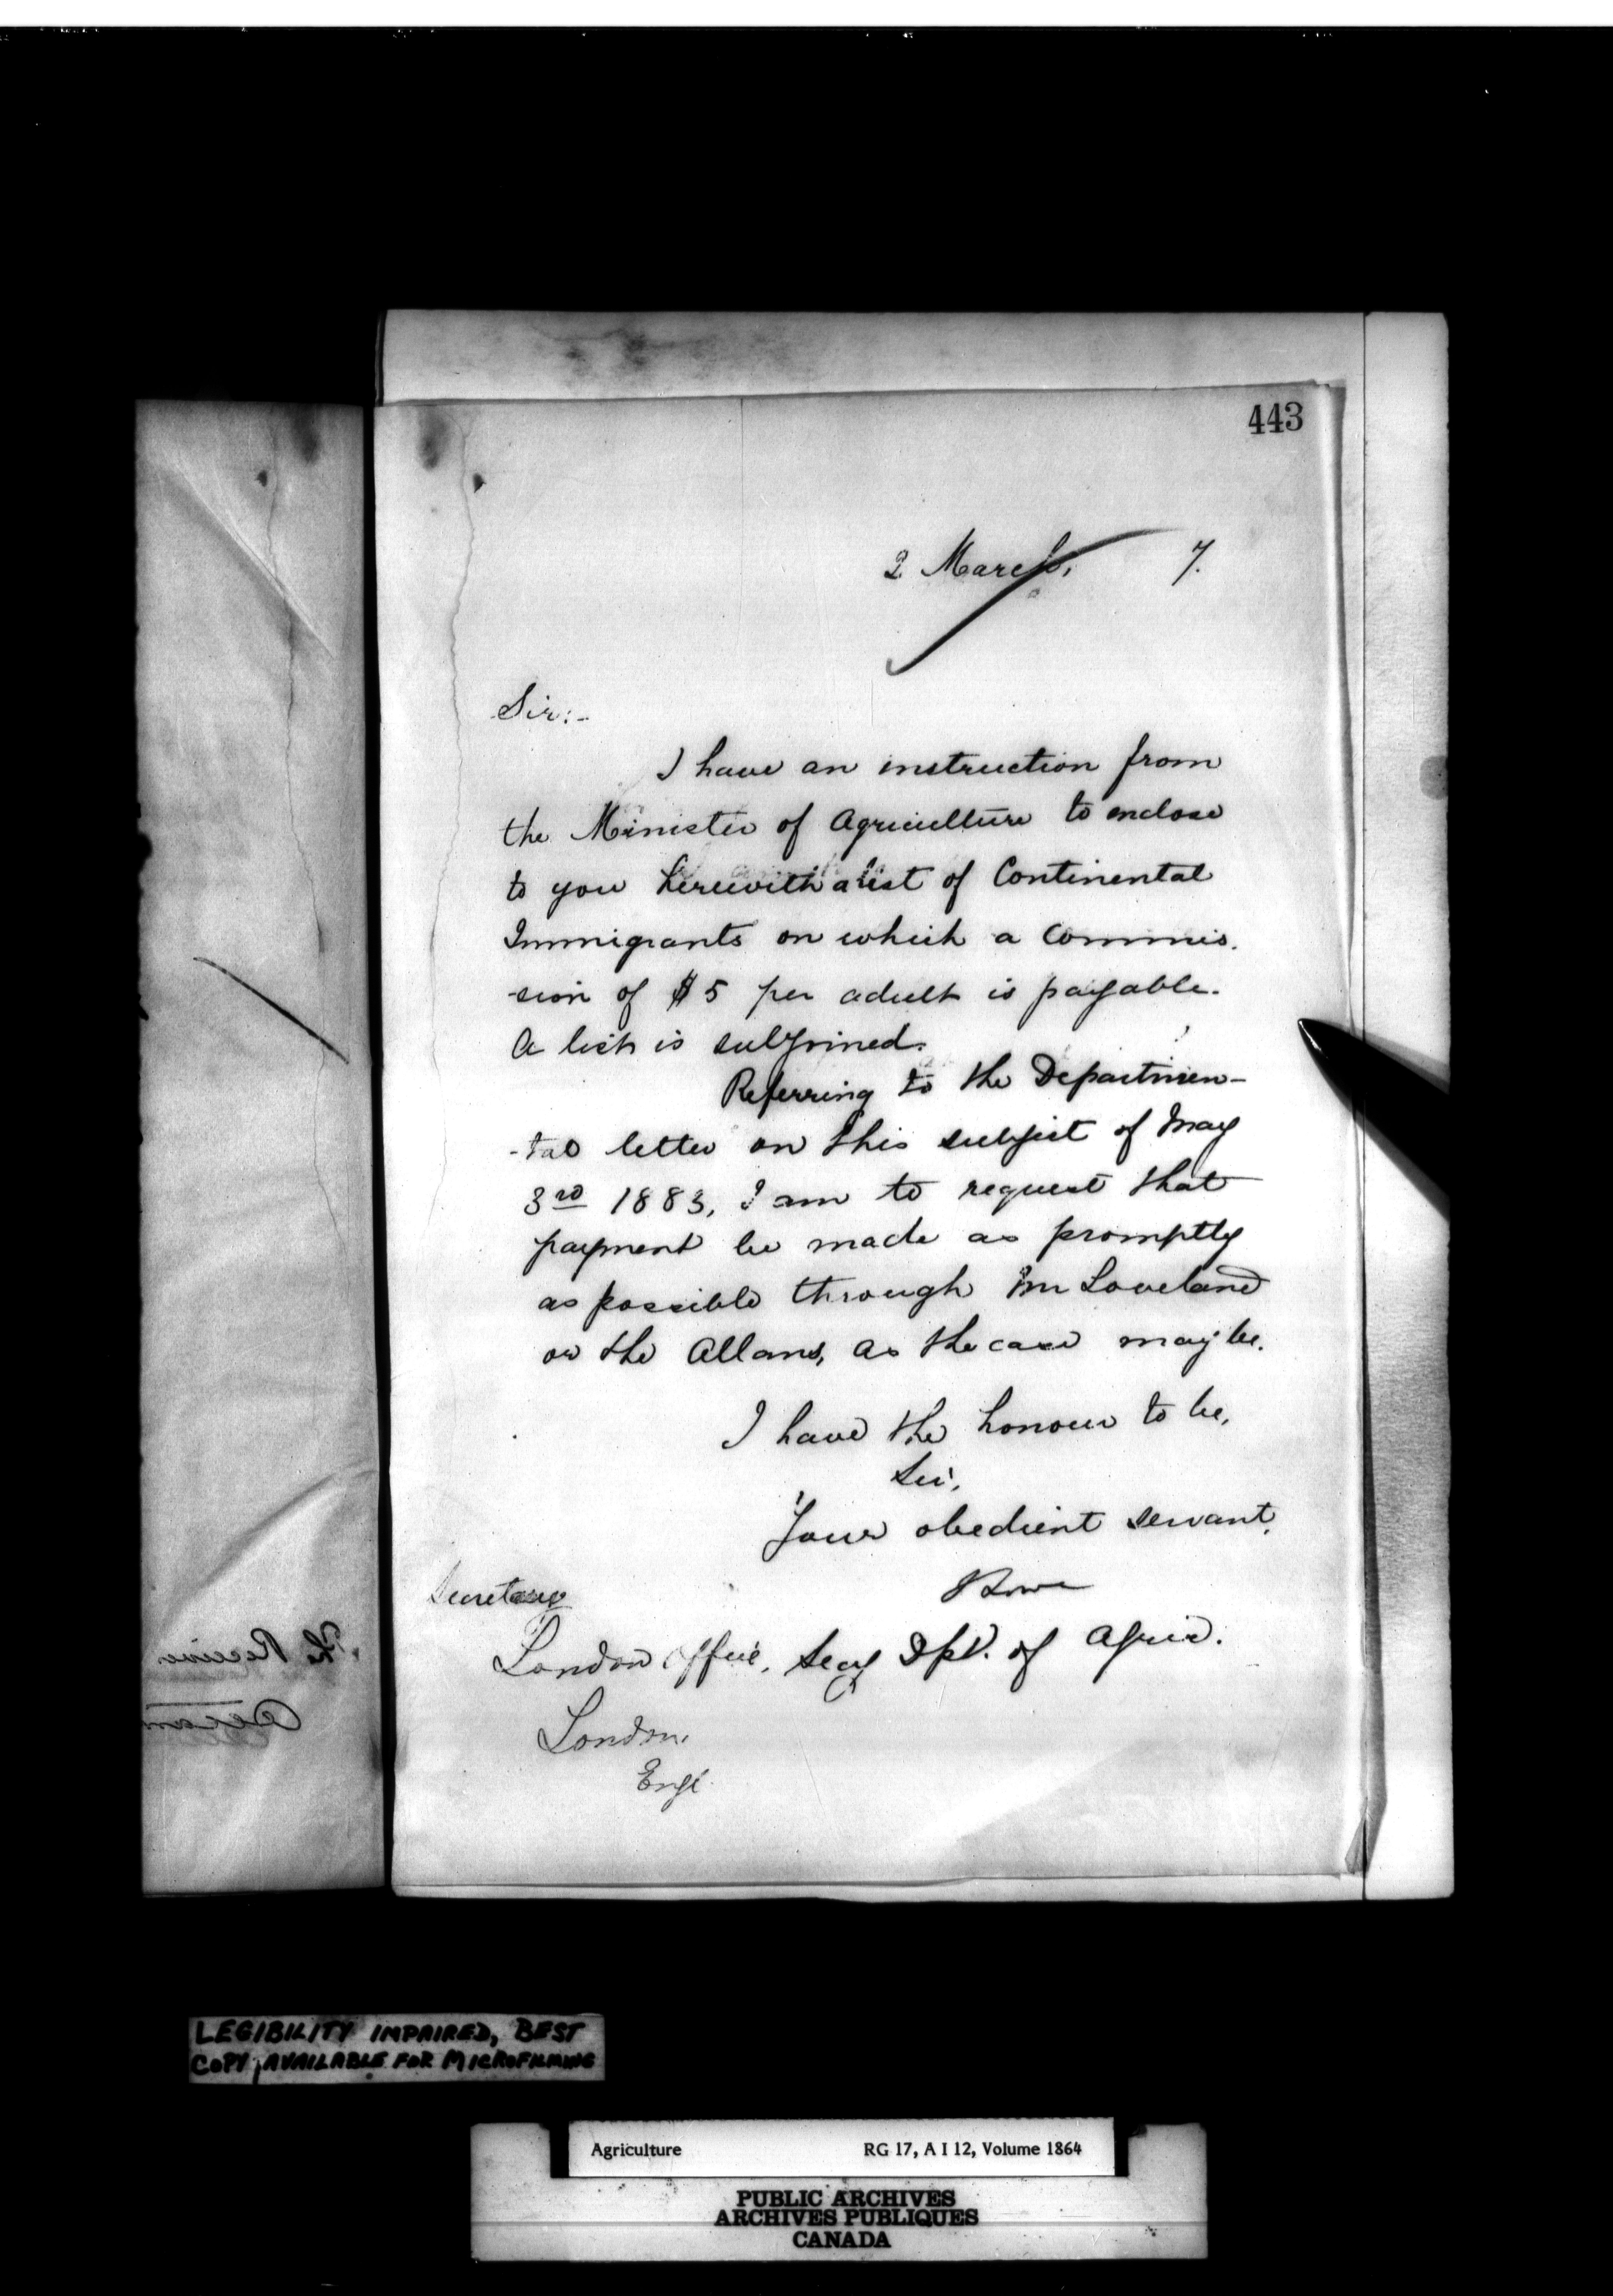 443
2 March, 7.
Sir:-
I have an instruction from
the Minister of Agriculture to enclose
to you herewith a list of Continental
Immigrants on which a commis-
-sion of $5 per adult is payable.
A list is subjoined.
Referring to the Departmen-
-tal letter on this subject of May
3rd 1883, I am to request that
payment be made as promptly
as possible through Mr Loveland
or the Allans, as the case may be.
I have the honour to be,
Sir,
Your obedient servant,
Secretary
London Office, Secy Dpt. of Agric.
London,
Engl.
The Receiver
LEGIBILITY IMPAIRED, BEST
COPY AVAILABLE FOR MICROFILMING
Agriculture RG 17, A I 12, Volume 1864
PUBLIC ARCHIVES
ARCHIVES PUBLIQUES
CANADA